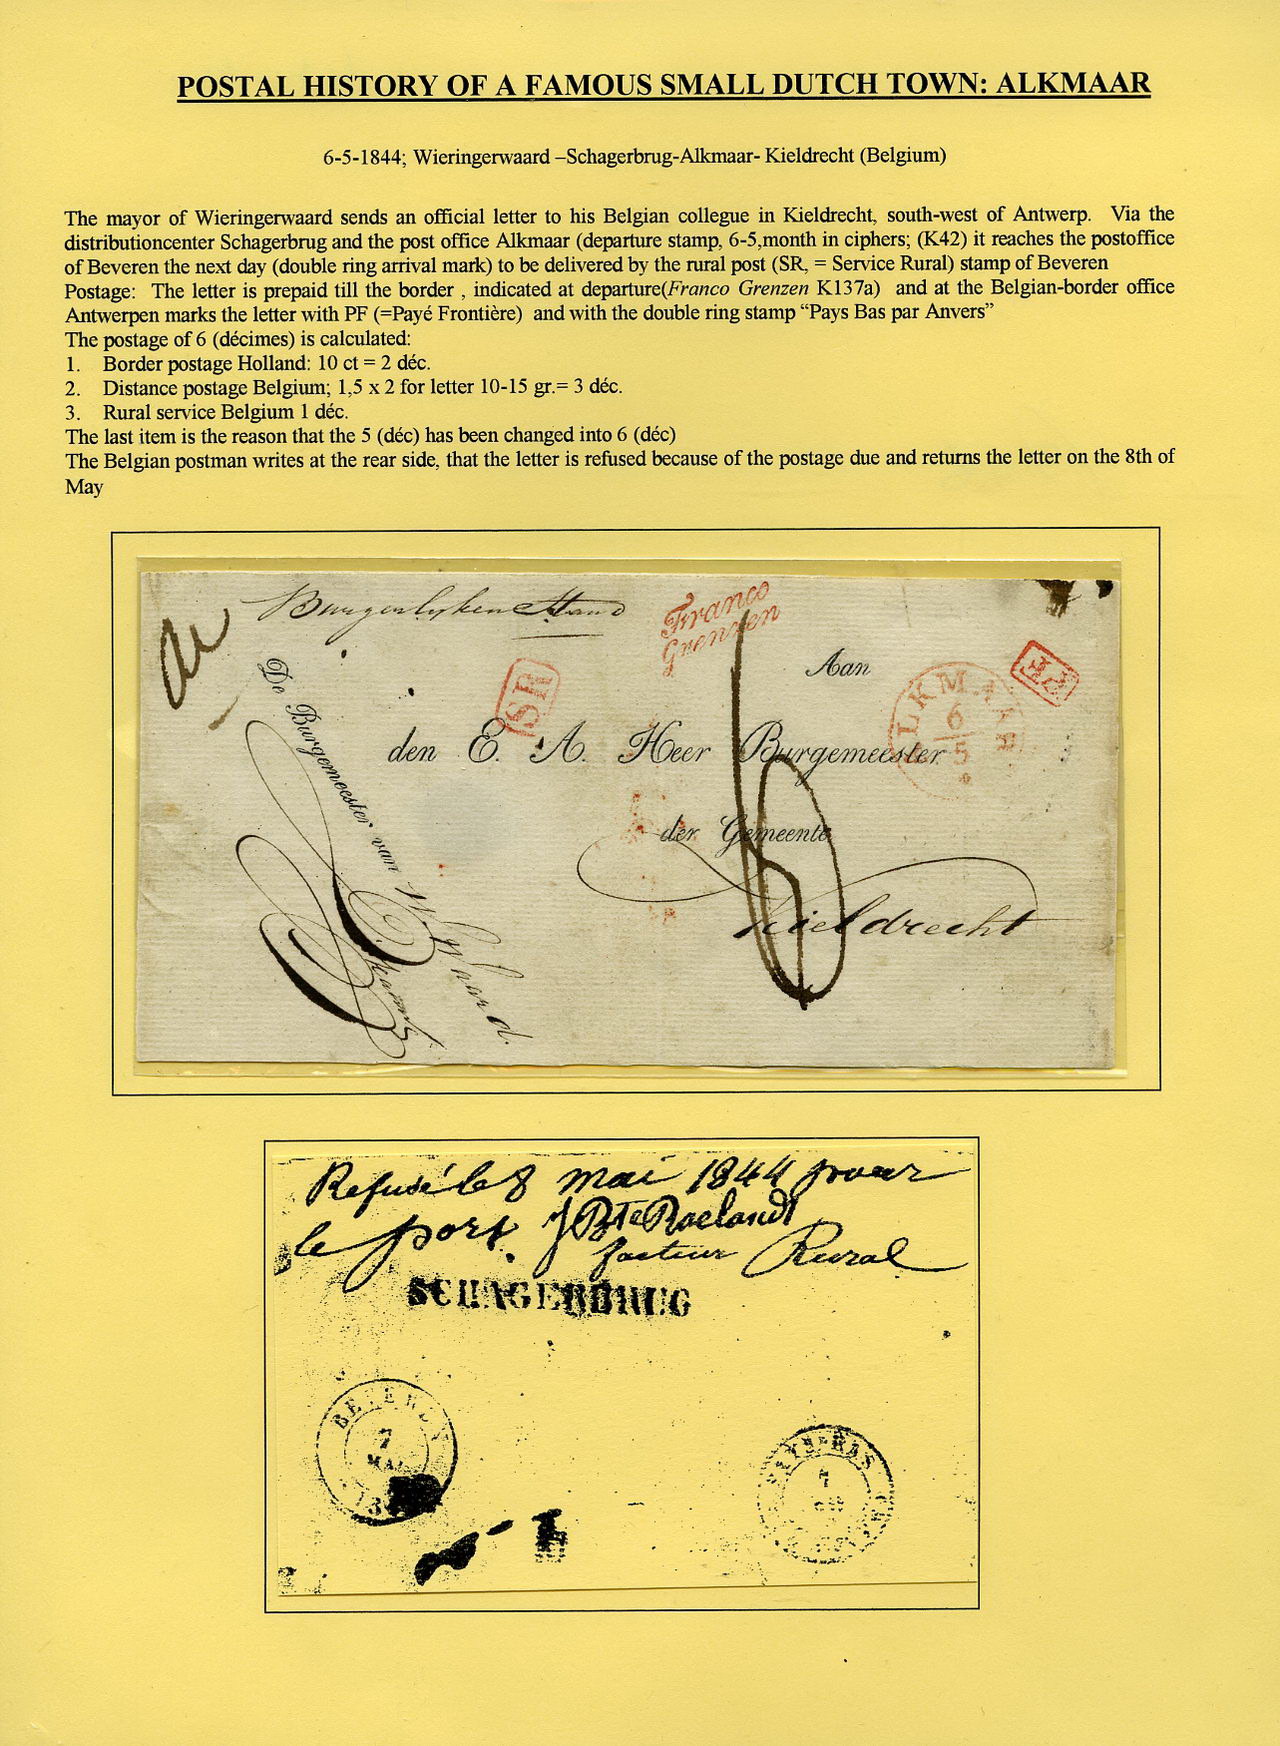 POSTAL HISTORY OF A FAMOUS SMALL DUTCH TOWN: ALKMAAR
6-5-1844; Wieringerwaard –Schagerbrug-Alkmaar- Kieldrecht (Belgium)
The mayor of Wieringerwaard sends an official letter to his Belgian collegue in Kieldrecht, south-west of Antwerp. Via the
distributioncenter Schagerbrug and the post office Alkmaar (departure stamp, 6-5,month in ciphers; (K42) it reaches the postoffice
of Beveren the next day (double ring arrival mark) to be delivered by the rural post (SR, = Service Rural) stamp of Beveren
Postage: The letter is prepaid till the border , indicated at departure(Franco Grenzen K137a) and at the Belgian-border office
Antwerpen marks the letter with PF (=Payé Frontière) and with the double ring stamp “Pays Bas par Anvers”
The postage of 6 (décimes) is calculated:
1. Border postage Holland: 10 ct = 2 déc.
2. Distance postage Belgium; 1,5 x 2 for letter 10-15 gr.= 3 déc.
3. Rural service Belgium 1 déc.
The last item is the reason that the 5 (déc) has been changed into 6 (déc)
The Belgian postman writes at the rear side, that the letter is refused because of the postage due and returns the letter on the 8th of
May
Burgerlyken Stand
Franco
Grenzen
Aan
PF
SR
ALKMAAR
6
5
den E. A. Heer Burgemeester
der Gemeente
Kieldrecht
6
De Burgemeester van
Refusé le 8 mai 1844 pour
le port. J Bte Roelandt
facteur Rural
SCHAGERBRUG
BEVEREN
7
MAI
PAYS-BAS
7